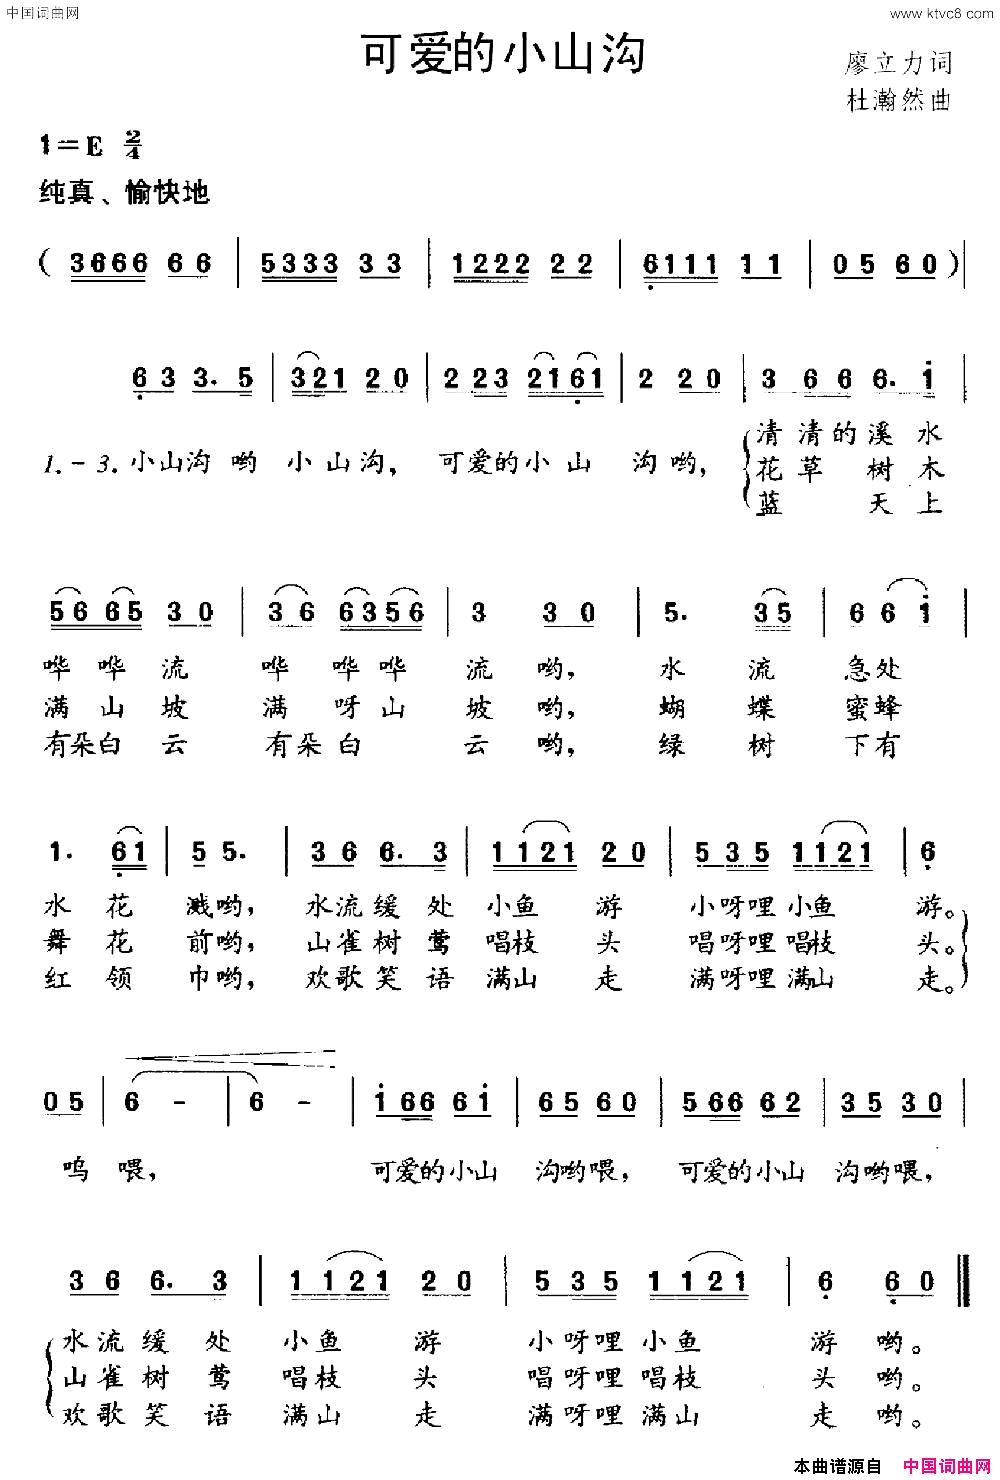 中国词曲网 www.ktvc8.com
可爱的小山沟
廖立力词
杜瀚然曲
1=E 2/4
纯真、愉快地
( 3666 66 | 5333 33 | 1222 22 | 6111 11 | 05 60 ) |
63 3. 5 | 321 20 | 2 23 2161 | 2 20 | 3 66 6. 1 |
1.-3. 小山沟 哟 小山沟, 可爱的小山 沟哟, 清清的溪水
花草 树木
蓝 天上
56 65 30 | 36 6356 | 3 30 | 5. 35 | 6 61 |
哗哗流 哗哗哗 流哟, 水流急处
满山坡 满呀山 坡哟, 蝴蝶蜜蜂
有朵白云 有朵白 云哟, 绿树下有
1. 61 | 5 5. | 36 6. 3 | 1121 20 | 535 1121 | 6
水花溅哟, 水流缓处小鱼游 小呀哩小鱼游。
舞花前哟, 山雀树莺唱枝头 唱呀哩唱枝头。
红领巾哟, 欢歌笑语满山走 满呀哩满山走。
05 | 6 - | 6 - | 166 61 | 65 60 | 566 62 | 35 30 |
呜喂, 可爱的小山 沟哟喂, 可爱的小山 沟哟喂,
36 6. 3 | 1121 20 | 535 1121 | 6 60 ‖
水流缓处小鱼游 小呀哩小鱼游哟。
山雀树莺唱枝头 唱呀哩唱枝头哟。
欢歌笑语满山走 满呀哩满山走哟。
本曲谱源自 中国词曲网